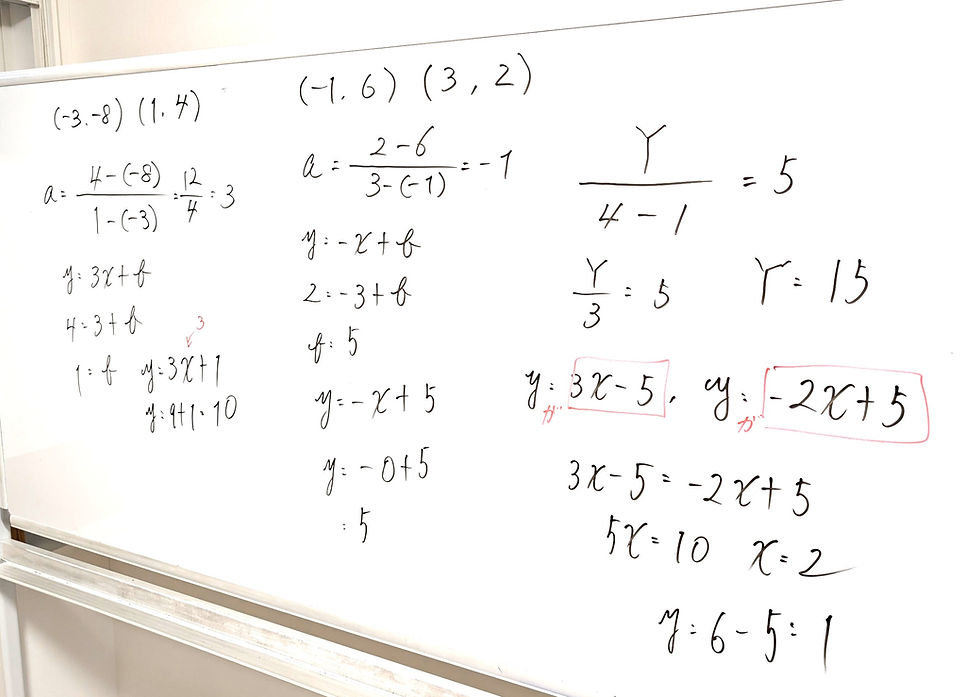 (-3.-8) (1.4)
a = 4-(-8) / 1-(-3) = 12/4 = 3
y = 3x + b
4 = 3 + b
3
1 = b y = 3x + 1
y = 9 + 1 = 10
(-1.6) (3, 2)
a = 2-6 / 3-(-1) = -1
y = -x + b
2 = -3 + b
b = 5
y = -x + 5
y = -0 + 5
= 5
Y / 4-1 = 5
Y/3 = 5 Y = 15
y = 3x-5, y = -2x+5
が が
3x-5 = -2x+5
5x = 10 x = 2
y = 6-5 = 1